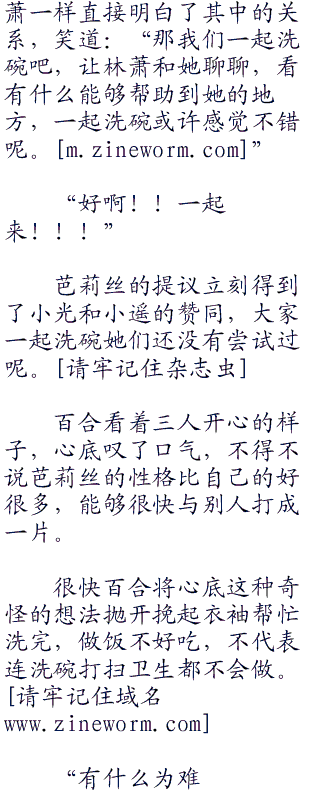 萧一样直接明白了其中的关
系，笑道：“那我们一起洗
碗吧，让林萧和她聊聊，看
有什么能够帮助到她的地
方，一起洗碗或许感觉不错
呢。[m.zineworm.com]”
“好啊！！一起
来！！！”
芭莉丝的提议立刻得到
了小光和小遥的赞同，大家
一起洗碗她们还没有尝试过
呢。[请牢记住杂志虫]
百合看着三人开心的样
子，心底叹了口气，不得不
说芭莉丝的性格比自己的好
很多，能够很快与别人打成
一片。
很快百合将心底这种奇
怪的想法抛开挽起衣袖帮忙
洗完，做饭不好吃，不代表
连洗碗打扫卫生都不会做。
[请牢记住域名
www.zineworm.com]
“有什么为难